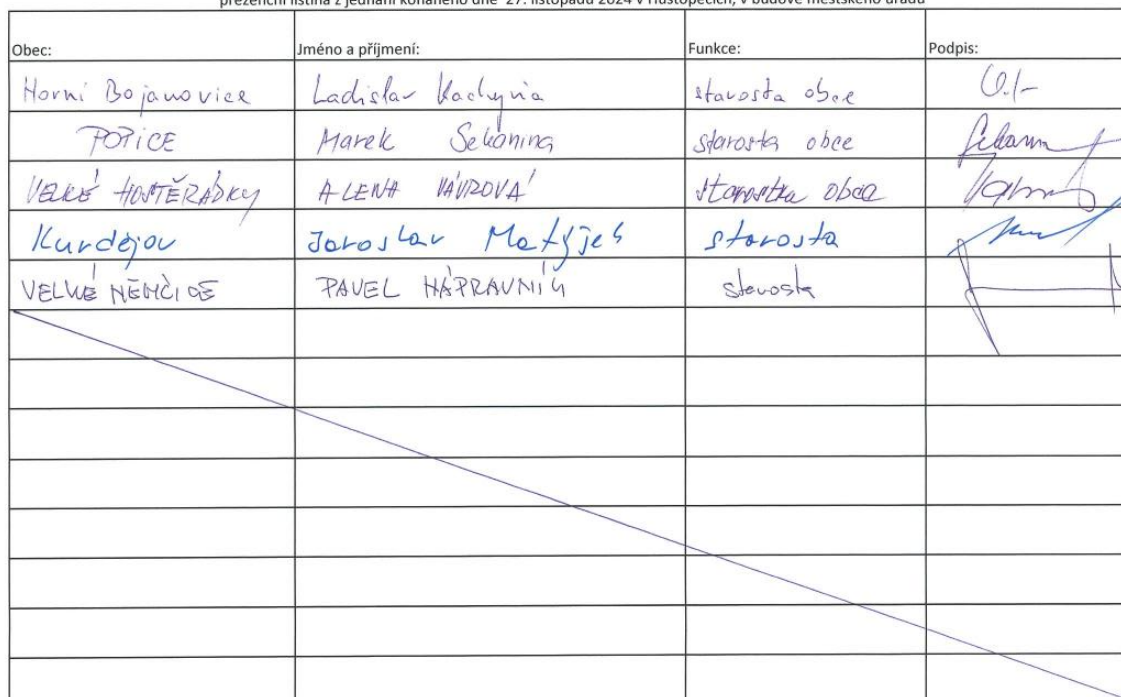 prezenční listina z jednání konaného dne 27. listopadu 2024 v Hustopečích, v budově městského úřadu
Obec: Jméno a příjmení: Funkce: Podpis:
Horní Bojanovice Ladislav Kachyňa starosta obce
POPICE Marek Sekanina starosta obce
VELKÉ HOSTĚRÁDKY ALENA VÁVROVÁ starostka obce
Kurdějov Jaroslav Matýjek starosta
VELKÉ NĚMČICE PAVEL NÁPRAVNÍK starosta